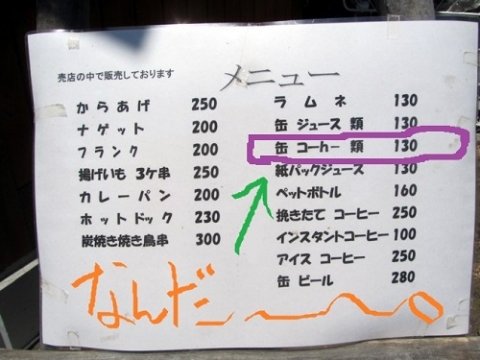 売店の中で販売しております
メニュー
からあげ 250
ナゲット 200
フランク 200
揚げいも 3ケ串 250
カレーパン 200
ホットドック 230
炭焼き焼き鳥串 300
ラムネ 130
缶 ジュース 類 130
缶 コーhー 類 130
紙パックジュース 130
ペットボトル 160
挽きたて コーヒー 250
インスタントコーヒー 100
アイス コーヒー 250
缶 ビール 280
なんだ〜〜〜。